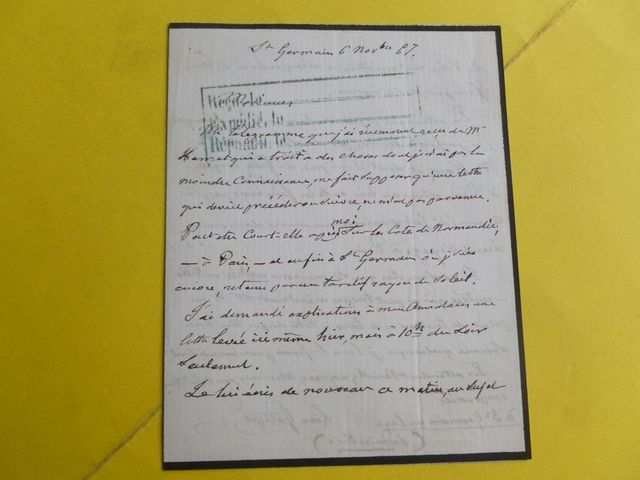 St Germain 6 Novbre 67.
Messieurs
Reçu le
Expédié, le
Répondu, le
Un télégramme que j'ai récemment reçu de Mr
et qui a trait à des choses dont je n'ai pas la
moindre connaissance, me fait supposer qu'une lettre
qui devait précéder ou suivre, ne m'est pas parvenue.
Peut-être court-elle après moi sur les Côtes de Normandie,
— à Paris, — et enfin à St Germain où je suis
encore, retenu par un tardif rayon de Soleil.
J'ai demandé explications à mon Ami dans une
lettre levée ici même hier, mais à 10h du Soir
Seulement.
Je lui écris de nouveau ce matin, au Sujet